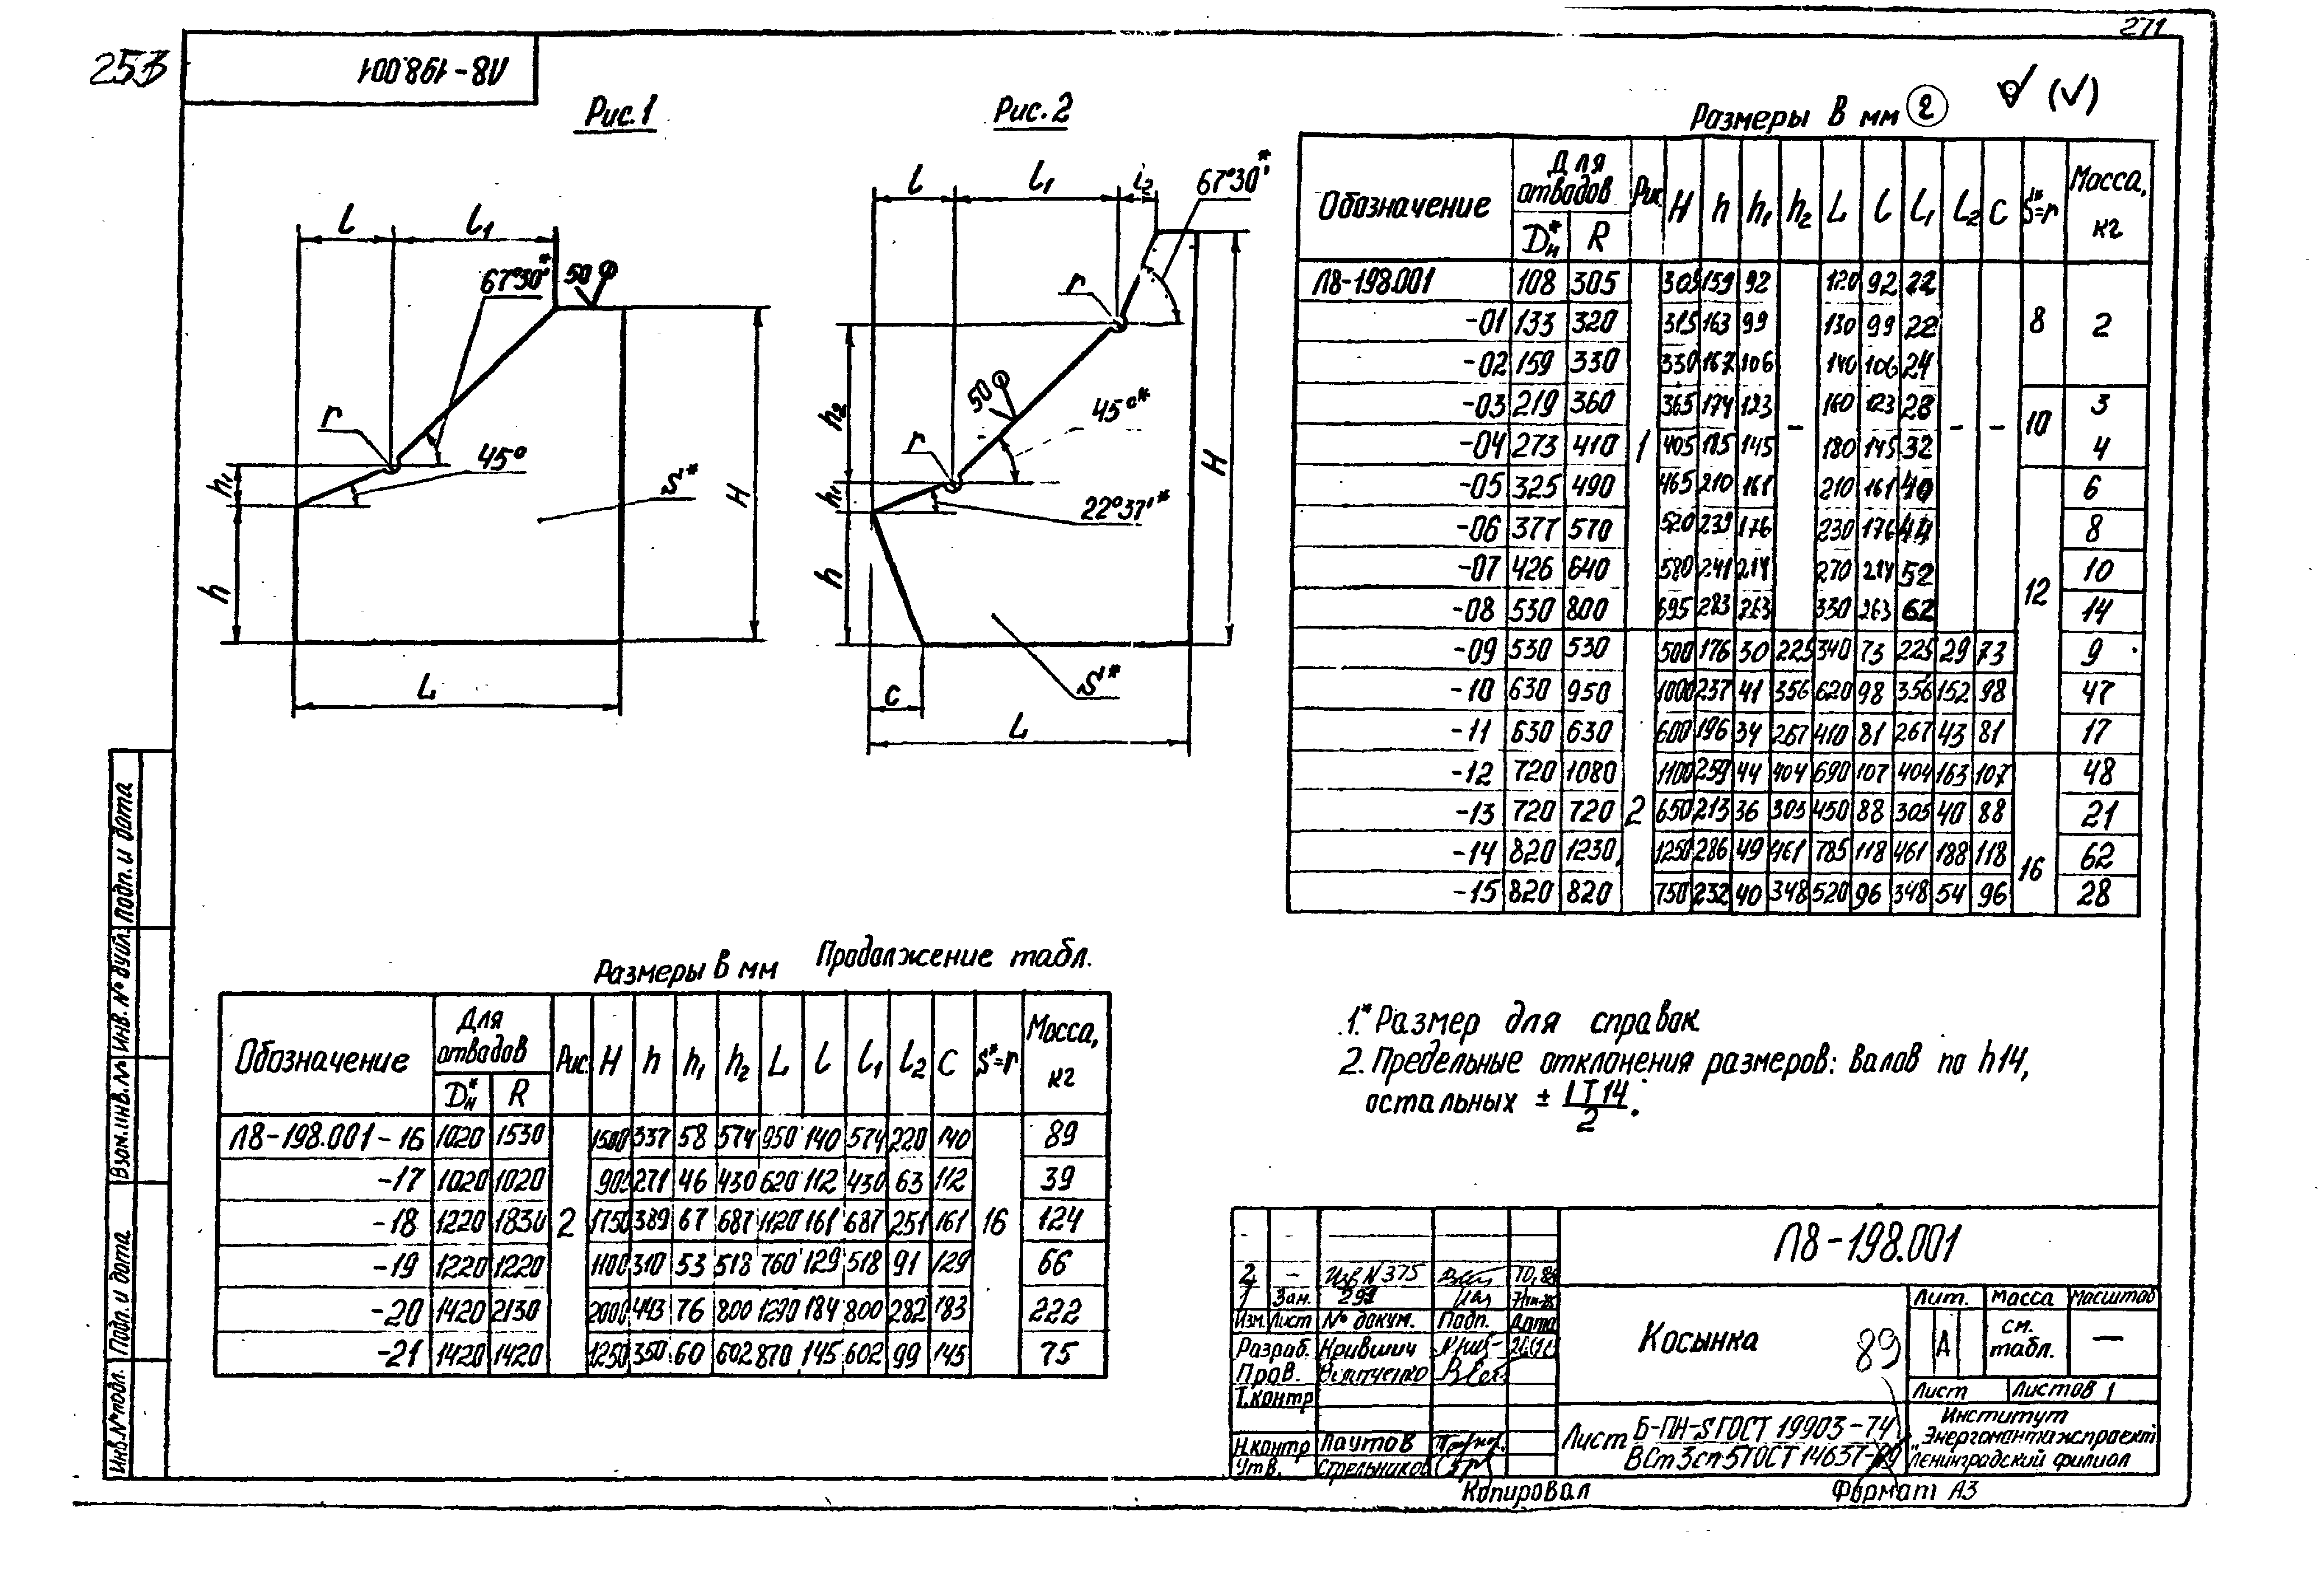 271
253
Л8-198.001
Рис.1
l
l₁
67°30'*
50
r
45°
h₁
h
H
S*
L
Рис.2
l
l₁
l₂
67°30'*
r
50
45°*
h₂
r
h₁
22°37'*
h
H
S*
c
L
Размеры в мм 2
(√)
Обозначение | Для отводов | Рис. | H | h | h₁ | h₂ | L | l | l₁ | l₂ | c | S*=r | Масса, кг
Dн* | R
Л8-198.001 108 305 1 305 159 92 – 120 92 22 – – 8 2
-01 133 320 315 163 99 130 99 22
-02 159 330 330 167 106 140 106 24
-03 219 360 365 174 123 160 123 28 10 3
-04 273 410 405 185 145 180 145 32 4
-05 325 490 465 210 161 210 161 40 12 6
-06 377 570 520 239 176 230 176 44 8
-07 426 640 580 241 214 270 214 52 10
-08 530 800 695 283 263 330 263 62 14
-09 530 530 2 500 176 30 225 340 73 225 29 73 9
-10 630 950 1000 237 41 356 620 98 356 152 98 47
-11 630 630 600 196 34 267 410 81 267 43 81 17
-12 720 1080 1100 259 44 404 690 107 404 163 107 16 48
-13 720 720 650 213 36 305 450 88 305 40 88 21
-14 820 1230 1250 286 49 461 785 118 461 188 118 62
-15 820 820 750 232 40 348 520 96 348 54 96 28
Размеры в мм Продолжение табл.
Обозначение | Для отводов | Рис. | H | h | h₁ | h₂ | L | l | l₁ | l₂ | c | S*=r | Масса, кг
Dн* | R
Л8-198.001-16 1020 1530 2 1500 337 58 574 950 140 574 220 140 16 89
-17 1020 1020 900 271 46 430 620 112 430 63 112 39
-18 1220 1830 1750 389 67 687 1120 161 687 251 161 124
-19 1220 1220 1100 310 53 518 760 129 518 91 129 66
-20 1420 2130 2000 443 76 800 1290 184 800 282 183 222
-21 1420 1420 1250 350 60 602 870 145 602 99 145 75
1.* Размер для справок
2. Предельные отклонения размеров: валов по h14,
остальных ± IT14/2.
Л8-198.001
2 – Изв N 375 10,88
1 Зам. 291
Изм. Лист № докум. Подп. Дата
Разраб. Крившич
Пров.
Т.контр
Н.контр Паутов
Утв. Стрельников
Косынка
89
Лит. Масса Масштаб
А см. табл. —
Лист Листов 1
Лист Б-ПН-S ГОСТ 19903-74
ВСт3сп5 ГОСТ 14637-89
Институт
"Энергомонтажпроект
Ленинградский филиал
Копировал
Формат А3
Подп. и дата
Инв. № дубл.
Взам. инв. №
Подп. и дата
Инв. № подл.